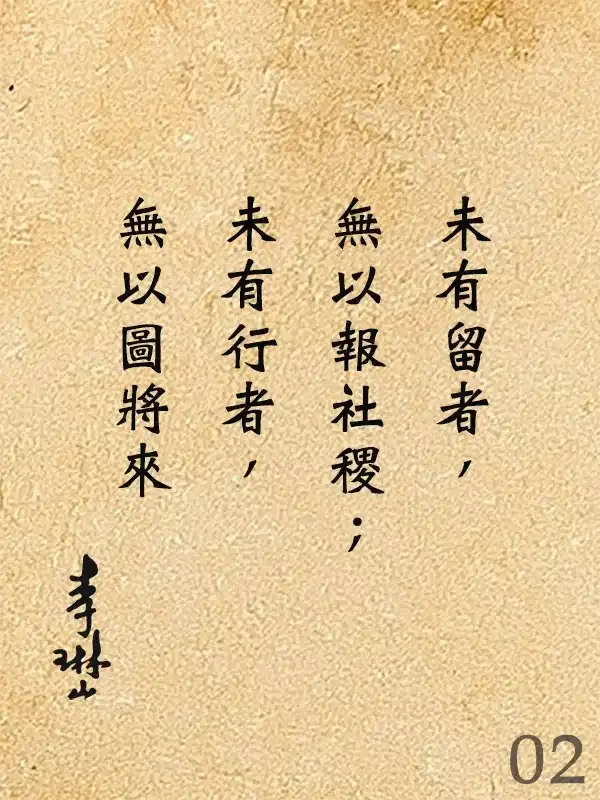 未有留者，
無以報社稷；
未有行者，
無以圖將來
李琳山
02